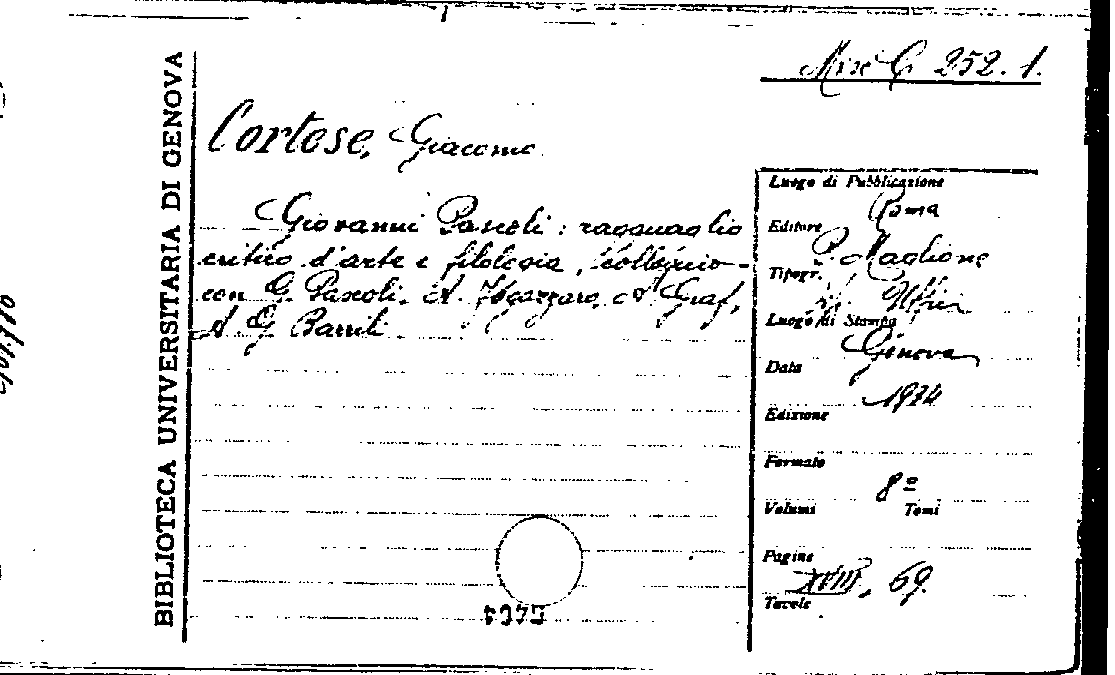 BIBLIOTECA UNIVERSITARIA DI GENOVA
Misc G 252. 1.
Cortese, Giacomo
Giovanni Pascoli: ragguaglio
critico d'arte e filologia, colloquio
con G. Pascoli, A. Fogazzaro, A. Graf,
A. G. Barrili
Luogo di Pubblicazione
Roma
Editore
P. Maglione
Tipogr.
Luogo di Stampa
Genova
Data
Edizione
Formato
8º
Volumi Tomi
Pagine
XVIII, 69
Tavole